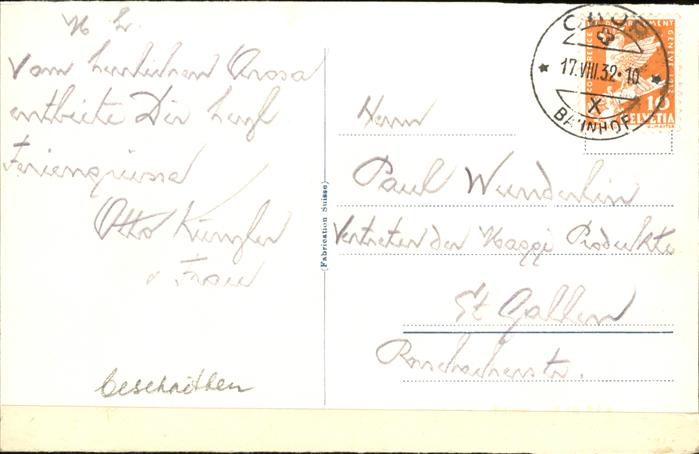 Vom herrlichen Arosa
entbiete Dir herzl.
Feriengrüsse
Otto Künzler
& Frau
beschrieben
(Fabrication Suisse)
CHUR
17.VIII.32·10
X
BAHNHOF
10
HELVETIA
Herrn
Paul Wunderlin
Vertreter der Maggi Produkte
St. Gallen
Rorschacherstr.